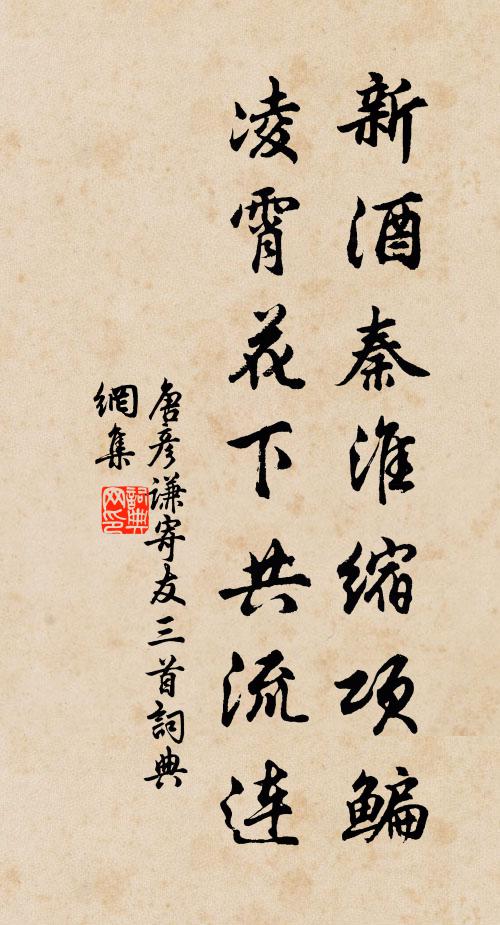 新酒秦淮缩项鳊
凌霄花下共流连
唐彦谦寄友三首詞典
網集
詞典网印